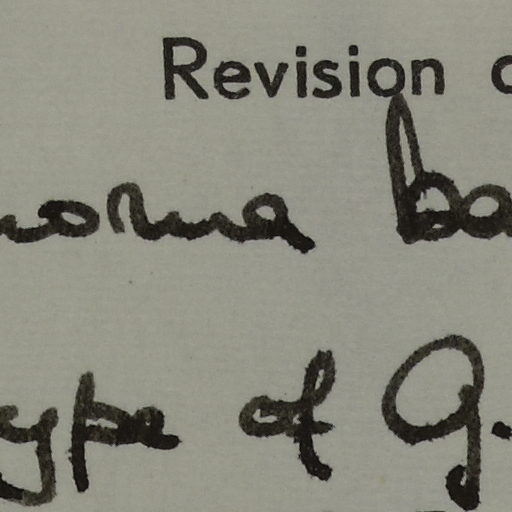 Revision
norma ba
ype of G.